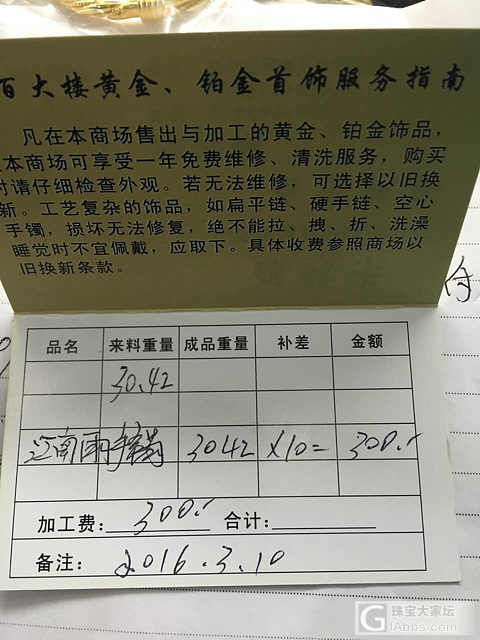 百大楼黄金、铂金首饰服务指南
凡在本商场售出与加工的黄金、铂金饰品，
在本商场可享受一年免费维修、清洗服务，购买
时请仔细检查外观。若无法维修，可选择以旧换
新。工艺复杂的饰品，如扁平链、硬手链、空心
手镯，损坏无法修复，绝不能拉、拽、折、洗澡
睡觉时不宜佩戴，应取下。具体收费参照商场以
旧换新条款。
品名 来料重量 成品重量 补差 金额
30.42
江南雨手镯 3042 ×10= 300.-
加工费：300.- 合计：
备注：2016.3.10
珠宝大家坛
GIAbbs.com